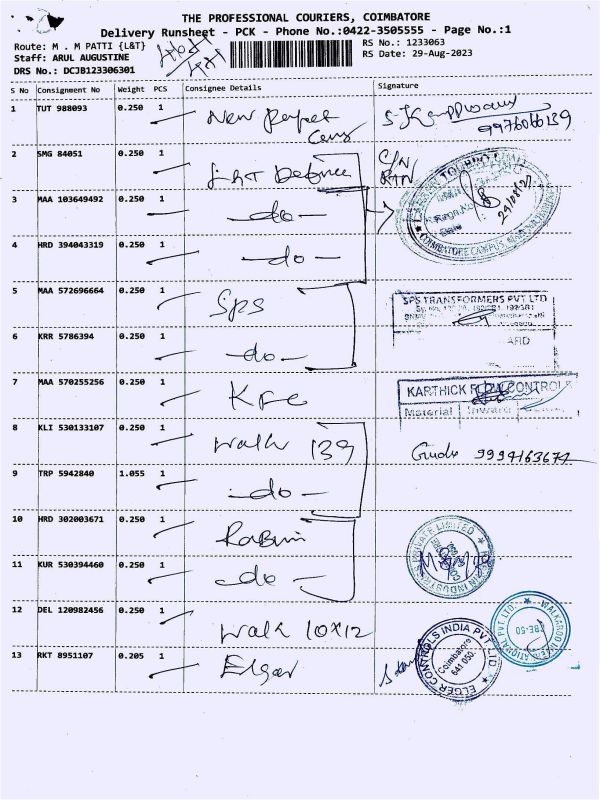 THE PROFESSIONAL COURIERS, COIMBATORE
Delivery Runsheet - PCK - Phone No.:0422-3505555 - Page No.:1
Route: M . M PATTI {L&T}
RS No.: 1233063
Staff: ARUL AUGUSTINE
RS Date: 29-Aug-2023
DRS No.: DCJB123306301
S No Consignment No Weight PCS Consignee Details Signature
1 TUT 988093 0.250 1 New
9976066139
2 SMG 84051 0.250 1 L&T Defence C/N
3 MAA 103649492 0.250 1 -do-
4 HRD 394043319 0.250 1 -do-
COIMBATORE CAMPUS
5 MAA 572696664 0.250 1 SPS
SPS TRANSFORMERS PVT LTD
6 KRR 5786394 0.250 1 -do-
7 MAA 570255256 0.250 1 KFC
KARTHICK FLOW CONTROLS
Material Inward
8 KLI 530133107 0.250 1 Walk 139
9 TRP 5942840 1.055 1 -do-
10 HRD 302003671 0.250 1
11 KUR 530394460 0.250 1 -do-
INDUSTRIES PRIVATE LIMITED
12 DEL 120982456 0.250 1 Walk 10x12
CBE-50
13 RKT 8951107 0.205 1 Elgar
ELGER CONTROLS INDIA PVT LTD
Coimbatore
641 050.